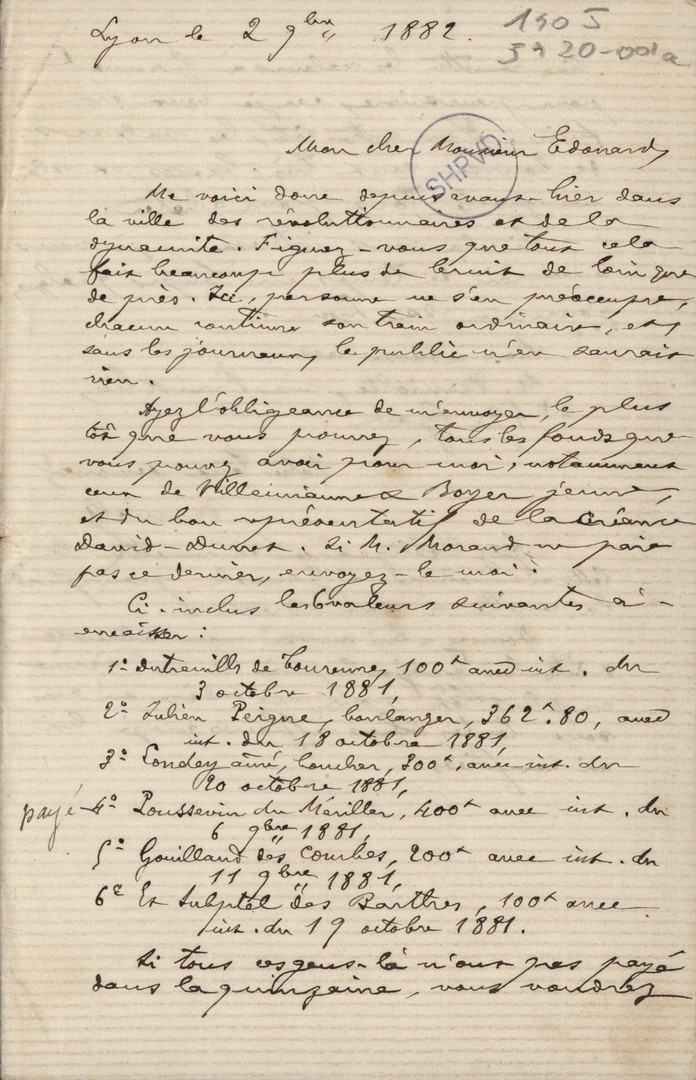 190 J
39 20-001a
Lyon le 2 9bre 1882.
SHPVD
Mon cher Monsieur Edouard,
Me voici donc depuis avant-hier dans
la ville des révolutionnaires et de la
dynamite. Figurez-vous que tout cela
fait beaucoup plus de bruit de loin que
de près. Ici, personne ne s'en préoccupe,
chacun continue son train ordinaire, et,
sans les journaux, le public n'en saurait
rien.
Ayez l'obligeance de m'envoyer, le plus
tôt que vous pourrez, tous les fonds que
vous pouvez avoir pour moi, notamment
ceux de Villemiaune & Boyer jeune,
et du bon représentatif de la créance
David-Dunet. Si M. Morand ne paie
pas ce dernier, envoyez-le moi.
Ci-inclus les 6 valeurs suivantes à
encaisser :
1º de Tourenne, 100f avec int. du
3 octobre 1881,
2º Julien Peigne, boulanger, 362f.80, avec
int. du 18 octobre 1881,
3º Condey aîné, boucher, 300f, avec int. du
20 octobre 1881,
payé 4º Poussevin du Ménillet, 400f avec int. du
6 9bre 1881,
5º Gouilland des Courbes, 200f avec int. du
11 9bre 1881,
6º Et des Barthes, 100f avec
int. du 19 octobre 1881.
Si tous ces gens-là n'ont pas payé
dans la quinzaine, vous voudrez